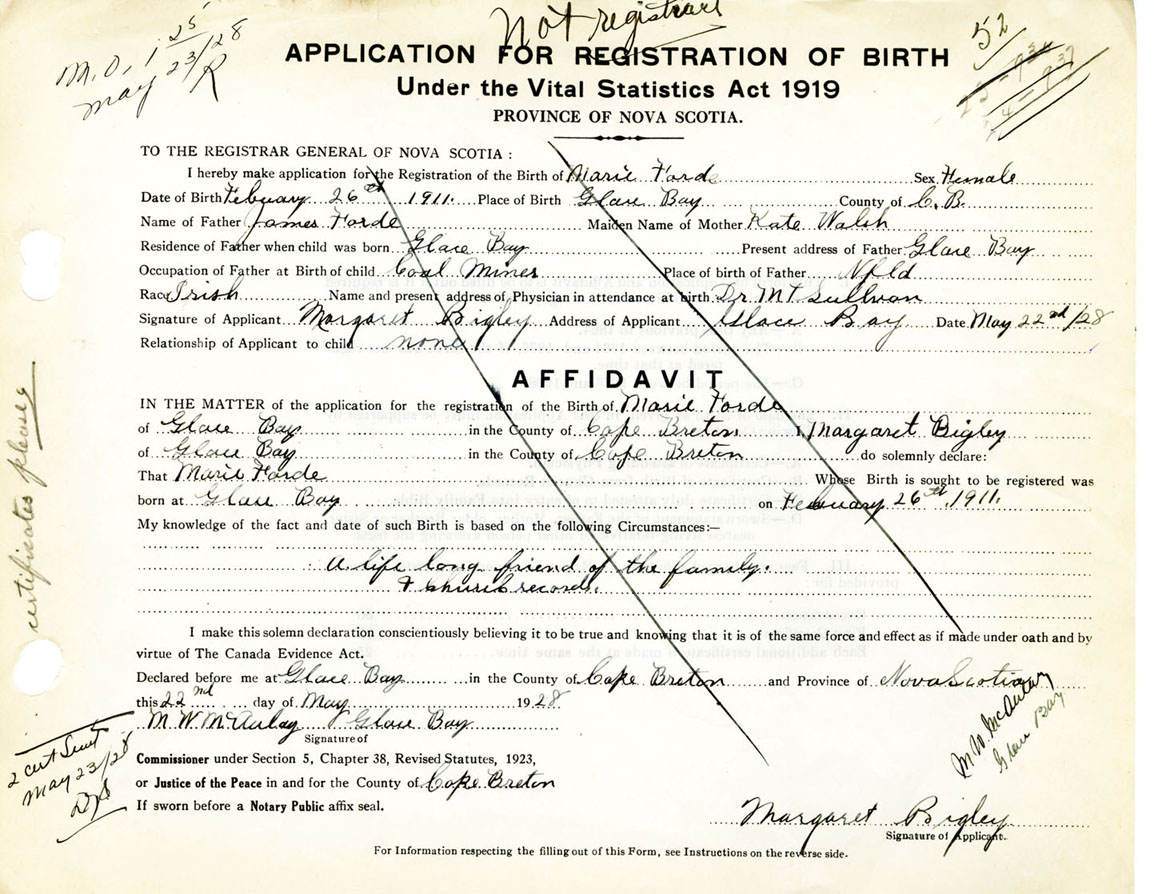 Not registered
M.O. 1 25
May 23/28
R
52
APPLICATION FOR REGISTRATION OF BIRTH
Under the Vital Statistics Act 1919
PROVINCE OF NOVA SCOTIA.
TO THE REGISTRAR GENERAL OF NOVA SCOTIA :
I hereby make application for the Registration of the Birth of Marie Forde Sex Female
Date of Birth Febuary 26th 1911. Place of Birth Glace Bay County of C. B.
Name of Father James Forde Maiden Name of Mother Kate Walsh
Residence of Father when child was born Glace Bay Present address of Father Glace Bay
Occupation of Father at Birth of child Coal Miner Place of birth of Father Nfld
Race Irish Name and present address of Physician in attendance at birth Dr. MT Sullivan
Signature of Applicant Margaret Bigley Address of Applicant Glace Bay Date May 22nd/28
Relationship of Applicant to child none
AFFIDAVIT
IN THE MATTER of the application for the registration of the Birth of Marie Forde
of Glace Bay in the County of Cape Breton I, Margaret Bigley
of Glace Bay in the County of Cape Breton do solemnly declare:
That Marie Forde Whose Birth is sought to be registered was
born at Glace Bay on February 26th, 1911.
My knowledge of the fact and date of such Birth is based on the following Circumstances:—
A life long friend of the family.
& church records.
I make this solemn declaration conscientiously believing it to be true and knowing that it is of the same force and effect as if made under oath and by
virtue of The Canada Evidence Act.
Declared before me at Glace Bay in the County of Cape Breton and Province of Nova Scotia
this 22nd day of May 1928
M. W. McAulay Glace Bay
Signature of
Commissioner under Section 5, Chapter 38, Revised Statutes, 1923,
or Justice of the Peace in and for the County of Cape Breton
If sworn before a Notary Public affix seal.
Margaret Bigley
Signature of Applicant.
For Information respecting the filling out of this Form, see Instructions on the reverse side.
certificates please
2 cert Sent
May 23/28
M.W. McAulay
Glace Bay